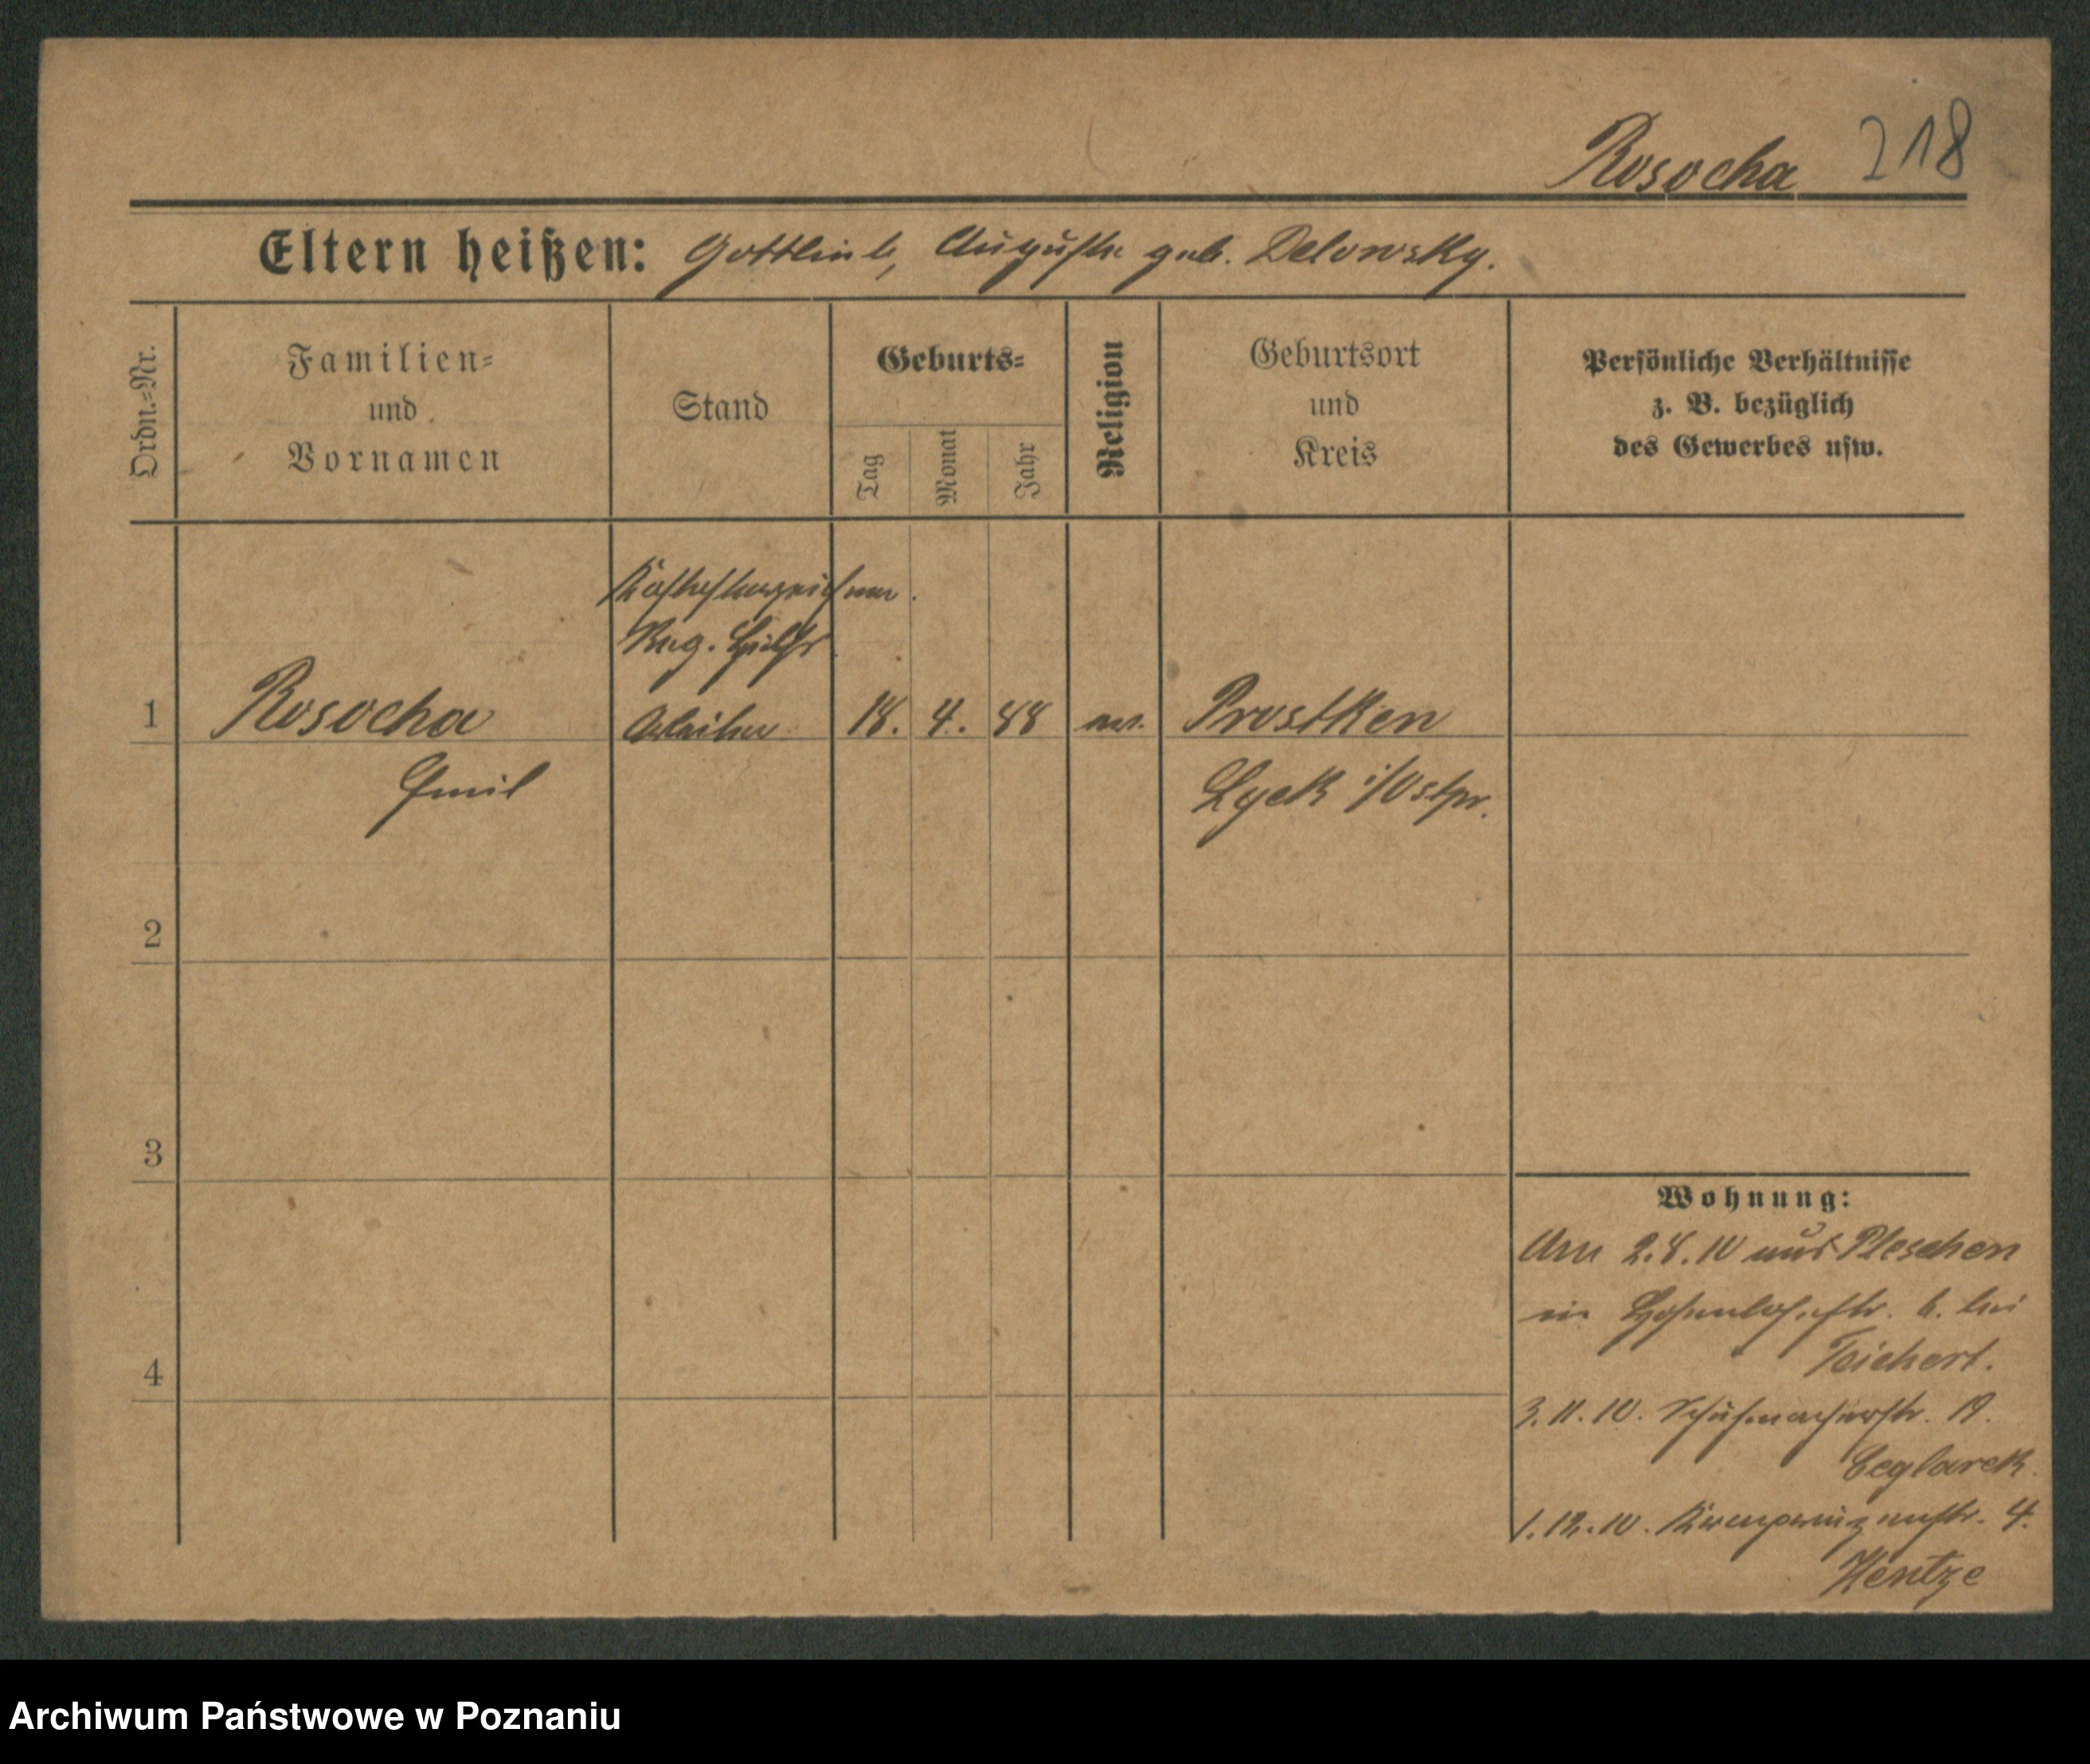 Rosocha 218
Eltern heißen: Gottlieb, Auguste geb. Delowsky.
Ordn.=Nr.
Familien=
und
Vornamen
Stand
Geburts=
Tag
Monat
Jahr
Religion
Geburtsort
und
Kreis
Persönliche Verhältnisse
z. B. bezüglich
des Gewerbes usw.
Reg. Hilfs
1 Rosocha Arbeiter 18. 4. 88 ev. Prostken
Emil Lyck i/Ostpr.
2
3
4
Wohnung:
Am 2.8.10 aus Pleschen
in Hohenlohestr. 6. bei
Teichert.
3.11.10. Schuhmacherstr. 19.
Ceglarek.
1.12.10. Kronprinzenstr. 4.
Hentze
Archiwum Państwowe w Poznaniu